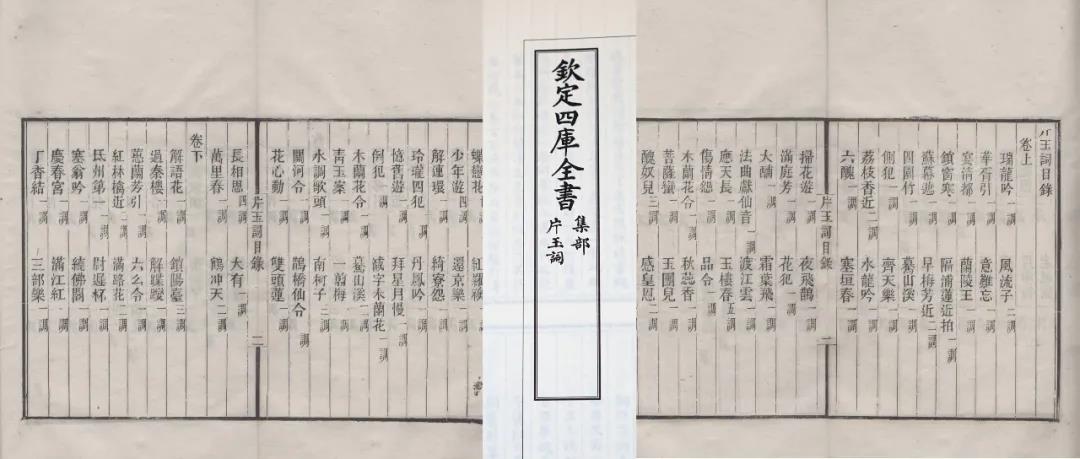 片玉詞目錄
卷上
瑞龍吟一調 風流子二調
華胥引一調 意難忘一調
宴清都一調 蘭陵王一調
鎖窗寒一調 隔浦蓮近拍一調
蘇幕遮一調 早梅芳近二調
四園竹一調 驀山溪一調
側犯一調 齊天樂一調
荔枝香近二調 水龍吟一調
六醜一調 塞垣春一調
片玉詞目錄 一
掃花遊一調 夜飛鵲一調
滿庭芳一調 花犯一調
大酺一調 霜葉飛一調
法曲獻仙音一調 渡江雲一調
應天長一調 玉樓春五調
傷情怨一調 品令一調
木蘭花令一調 秋蕊香一調
菩薩蠻一調 玉團兒一調
醜奴兒三調 感皇恩一調
欽定四庫全書
集部
片玉詞
蝶戀花 調 紅羅襖一調
少年遊四調 還京樂一調
解連環一調 綺寮怨一調
玲瓏四犯一調 丹鳳吟一調
憶舊遊一調 拜星月慢一調
倒犯一調 減字木蘭花一調
木蘭花令一調 驀山溪二調
青玉案一調 一剪梅一調
水調歌頭一調 南柯子三調
關河令一調 鵲橋仙令一調
花心動一調 雙頭蓮一調
片玉詞目錄 二
長相思四調 大有一調
萬里春一調 鶴冲天二調
卷下
解語花一調 鎖陽臺三調
過秦樓一調 解蹀躞一調
蕙蘭芳引一調 六么令一調
紅林檎近二調 滿路花二調
氐州第一一調 尉遲杯一調
塞翁吟一調 繞佛閣一調
慶春宮一調 滿江紅一調
丁香結一調 三部樂一調